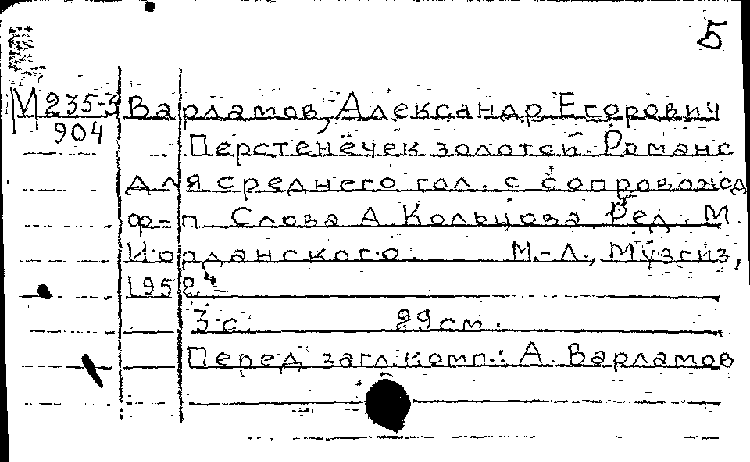 5
М 235-3 Варламов, Александр Егорович
904
Перстенёчек золотой. Романс
для среднего гол. с сопровожд
ф-п Слова А Кольцова Ред. М.
Иорданского. М.-Л., Музгиз,
1952
3 с. 29 см.
Перед загл. комп.: А. Варламов